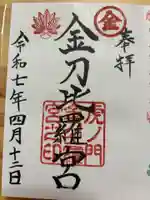 奉拝
㊎
金刀比羅宮
虎ノ門
令和七年四月十三日